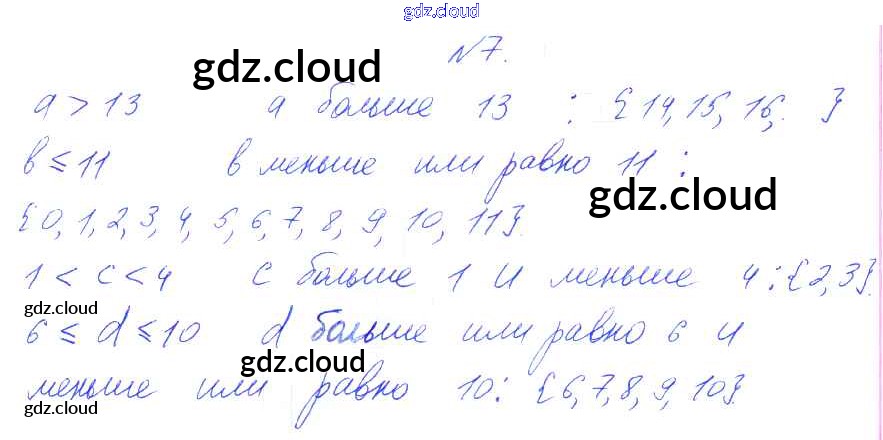 gdz.cloud
№7.
gdz.cloud
a > 13 a больше 13 : {14, 15, 16, . }
в ≤ 11 в меньше или равно 11 :
gdz.cloud
{0, 1, 2, 3, 4, 5, 6, 7, 8, 9, 10, 11}.
1 < c < 4 c больше 1 и меньше 4 : {2, 3}.
gdz.cloud
6 ≤ d ≤ 10 d больше или равно 6 и
gdz.cloud
меньше или равно 10: {6, 7, 8, 9, 10}.
gdz.cloud